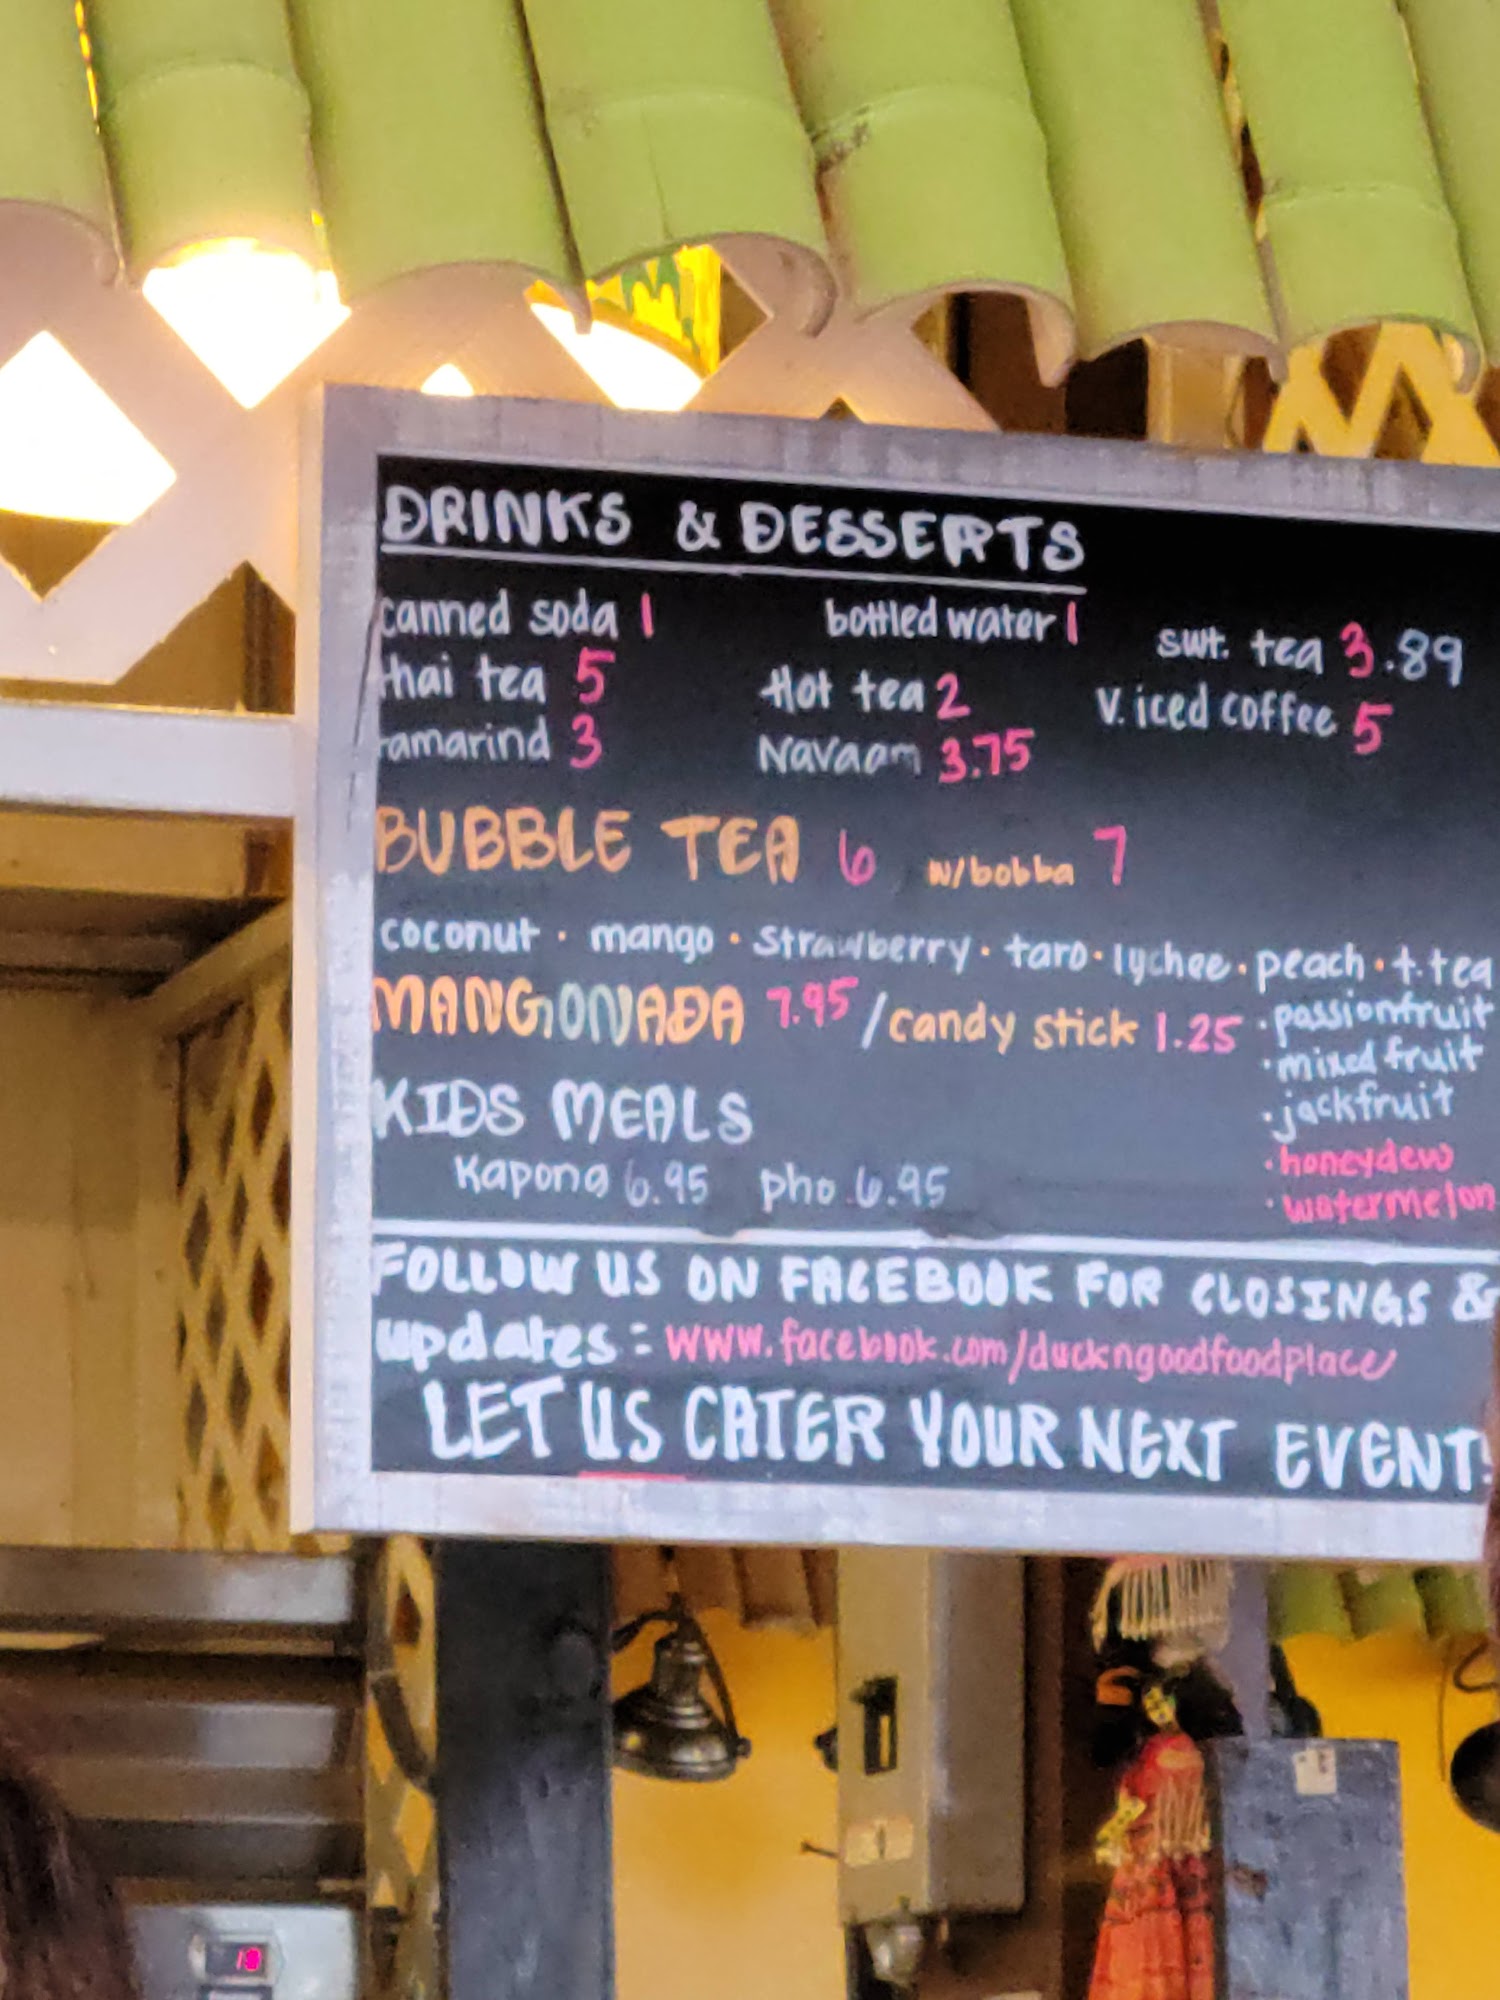 DRINKS & DESSERTS
canned soda 1 bottled water 1 swt. tea 3.89
thai tea 5 Hot tea 2 V. iced coffee 5
tamarind 3 Navaam 3.75
BUBBLE TEA 6 w/bobba 7
coconut · mango · strawberry · taro · lychee · peach · t.tea
· passionfruit
· mixed fruit
· jackfruit
· honeydew
· watermelon
MANGONADA 7.95 / candy stick 1.25
KIDS MEALS
Kapong 6.95 pho 6.95
FOLLOW US ON FACEBOOK FOR CLOSINGS &
updates: www.facebook.com/duckngoodfoodplace
LET US CATER YOUR NEXT EVENT!